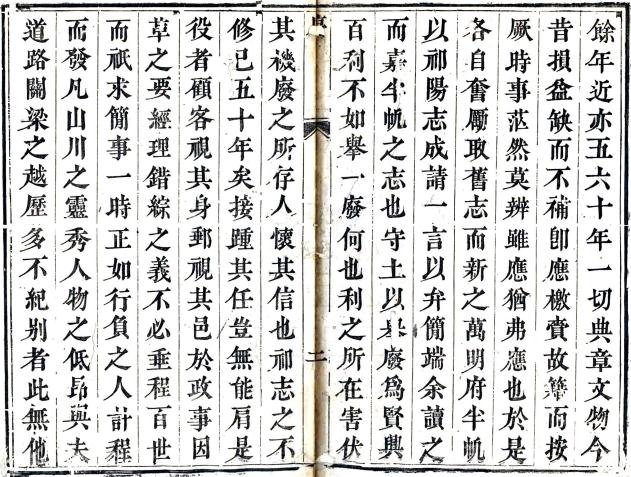 餘年近亦五六十年一切典章文物今
昔損益缺而不補卽應檄賫故籍而按
厥時事茫然莫辨雖應猶弗應也於是
各自奮厲取舊志而新之萬明府半帆
以祁陽志成請一言以弁簡端余讀之
而嘉半帆之志也守土以舉廢爲賢興
百利不如舉一廢何也利之所在害伏
二
其禨廢之所存人懷其信也祁志之不
修已五十年矣接踵其任豈無能肩是
役者顧客視其身郵視其邑於政事因
草之要經理錯綜之義不必垂程百世
而祇求簡事一時正如行負之人計程
而發凡山川之靈秀人物之低昂與夫
道路關梁之越歷多不紀别者此無他